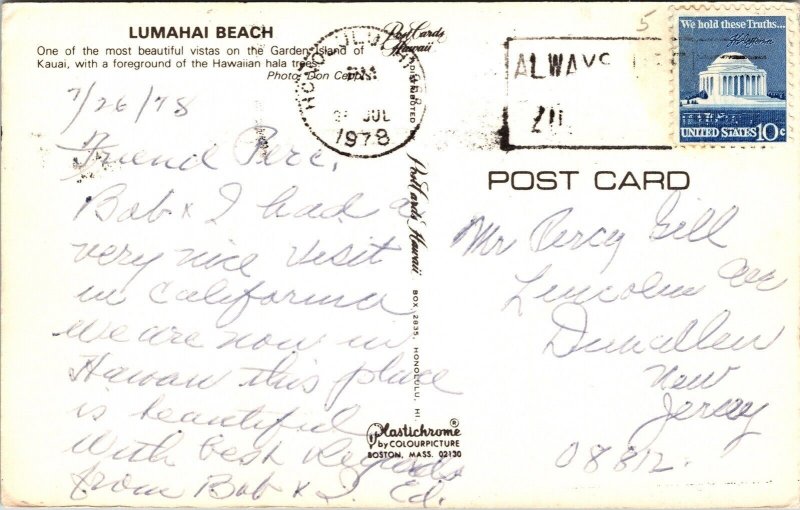 LUMAHAI BEACH
One of the most beautiful vistas on the Garden Island of
Kauai, with a foreground of the Hawaiian hala trees.
Photo: Don Ceppi
7/26/78
Friend Perc,
Bob & I had a
very nice visit
in California
We are now in
Hawaii this place
is beautiful
With best Regards
from Bob & I. Ed.
HONOLULU, HI
PM
JUL
1978
PostCards
Hawaii
DISTRIBUTED
PostCards Hawaii
BOX 2835, HONOLULU, HI.
Plastichrome®
by COLOURPICTURE
BOSTON, MASS. 02130
5
ALWAYS
ZIP
We hold these Truths...
UNITED STATES 10c
POST CARD
Mr Percy Gill
Lincoln Ave
Dunellen
New
Jersey
08812.